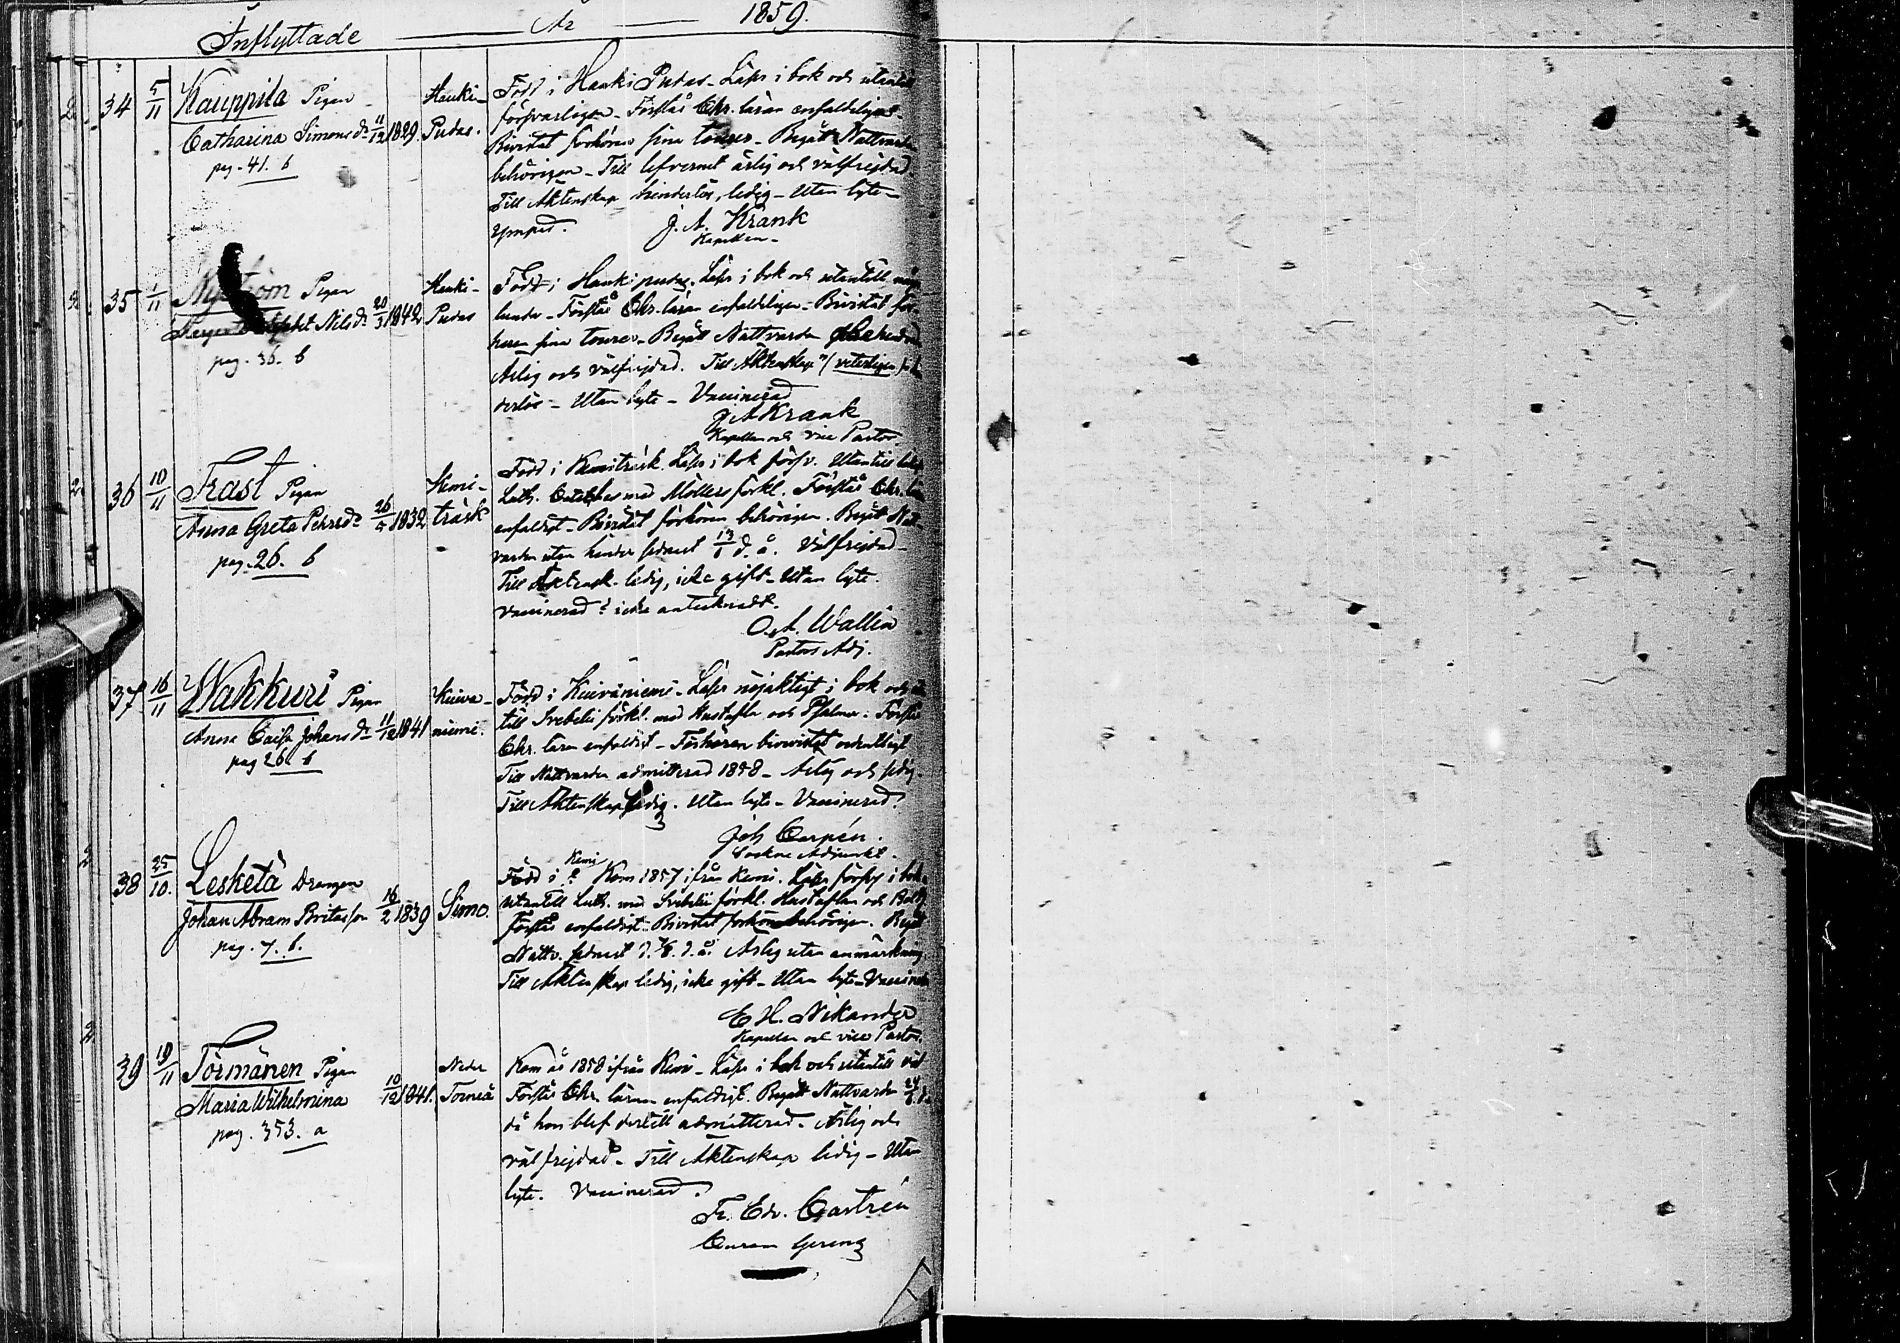 Inflyttade År 1859.
2. 34 5/11 Kauppila Pigan
Catharina Simonsdr 11/12 1829
pag. 41. b
Hauki-
Pudas.
Född i Hauki Pudas. Läser i bok och utantill
försvarligen. Förstår Chr. läran enfaldeligen.
Bivistat förhören sina tourer. Begått Nattvarden
behörigen. Till lefvernet ärlig och välfrejdad.
Till Äktenskap hinderlös, ledig. Utan lyte.
Ympad. J. A. Krank
Kapellan.
2. 35 1/11 Nyström Pigan
Nilsdr 20/3 1842
pag. 36. b
Hauki-
Pudas
Född i Haukipudas. Läser i bok och utantill
Förstår Chr. läran enfaldeligen. Bivistat för-
hören sina tourer. Begått Nattvarden
Ärlig och välfrejdad. Till Äktenskap veterligen
derlös. Utan lyte. Vaccinerad
J A Krank
Kapellan och vice Pastor.
2. 36 10/11 Frast Pigan
Anna Greta Pehrsdr 26/5 1832
pag. 26. b
Kemi-
träsk
Född i Kemiträsk. Läser i bok försv. Utantill
Luth. Cateches med Möllers förkl. Förstår Chr.
enfaldigt. Bivistat förhören behörigen. Begått Natt-
varden utan hinder sednast 13/6 d. å. Välfrejdad.
Till Äktensk. ledig, icke gift. Utan lyte.
Vaccinerad? icke antecknadt.
O. A. Wallin
Pastors Adj.
37 16/11 Wakkuri Pigan
Anna Caisa Johansdr 11/12 1841
pag 26. b
Kuiva-
niemi.
Född i Kuivaniemi. Läser nöjaktigt i bok och
till Svebelii förkl. med Hustafla och Psalmer. Förstår
Chr. läran enfaldigt. Förhören bivistat ordentligt
Till Nattvarden admitterad 1858. Ärlig och sedig.
Till Äktenskap ledig. Utan lyte. Vaccinerad.
Joh Carpén.
Sockne Adjunkt.
2 38 25/10. Lesketä Drängen
Johan Abram Britasson 16/2 1839
pag. 7. b.
Simo.
Kemi
Född i ? Kom 1857 ifrån Kemi. Läser försv i bok.
Utantill Luth. med Svebelii förkl. Hustaflan och
Förstår enfaldigt. Bivistat förhören behörigen. Begått
Nattv. sednast d. å. Ärlig utan anmärkning.
Till Äktenskap ledig, icke gift. Utan lyte. Vaccinerad
E H. Nikander
Kapellan och vice Pastor.
2 39 19/11 Törmänen Pigan
Maria Wilhelmina 10/12 1841.
pag. 353. a
Neder
Torneå
Kom år 1858 ifrån Kemi. Läser i bok och utantill väl
Förstår Chr. läran enfaldigt. Begått Nattvarden
då hon blef dertill admitterad. Ärlig och
välfrejdad. Till Äktenskap ledig. Utan
lyte. Vaccinerad.
Fr. Edv. Castrén
Curam Gerens